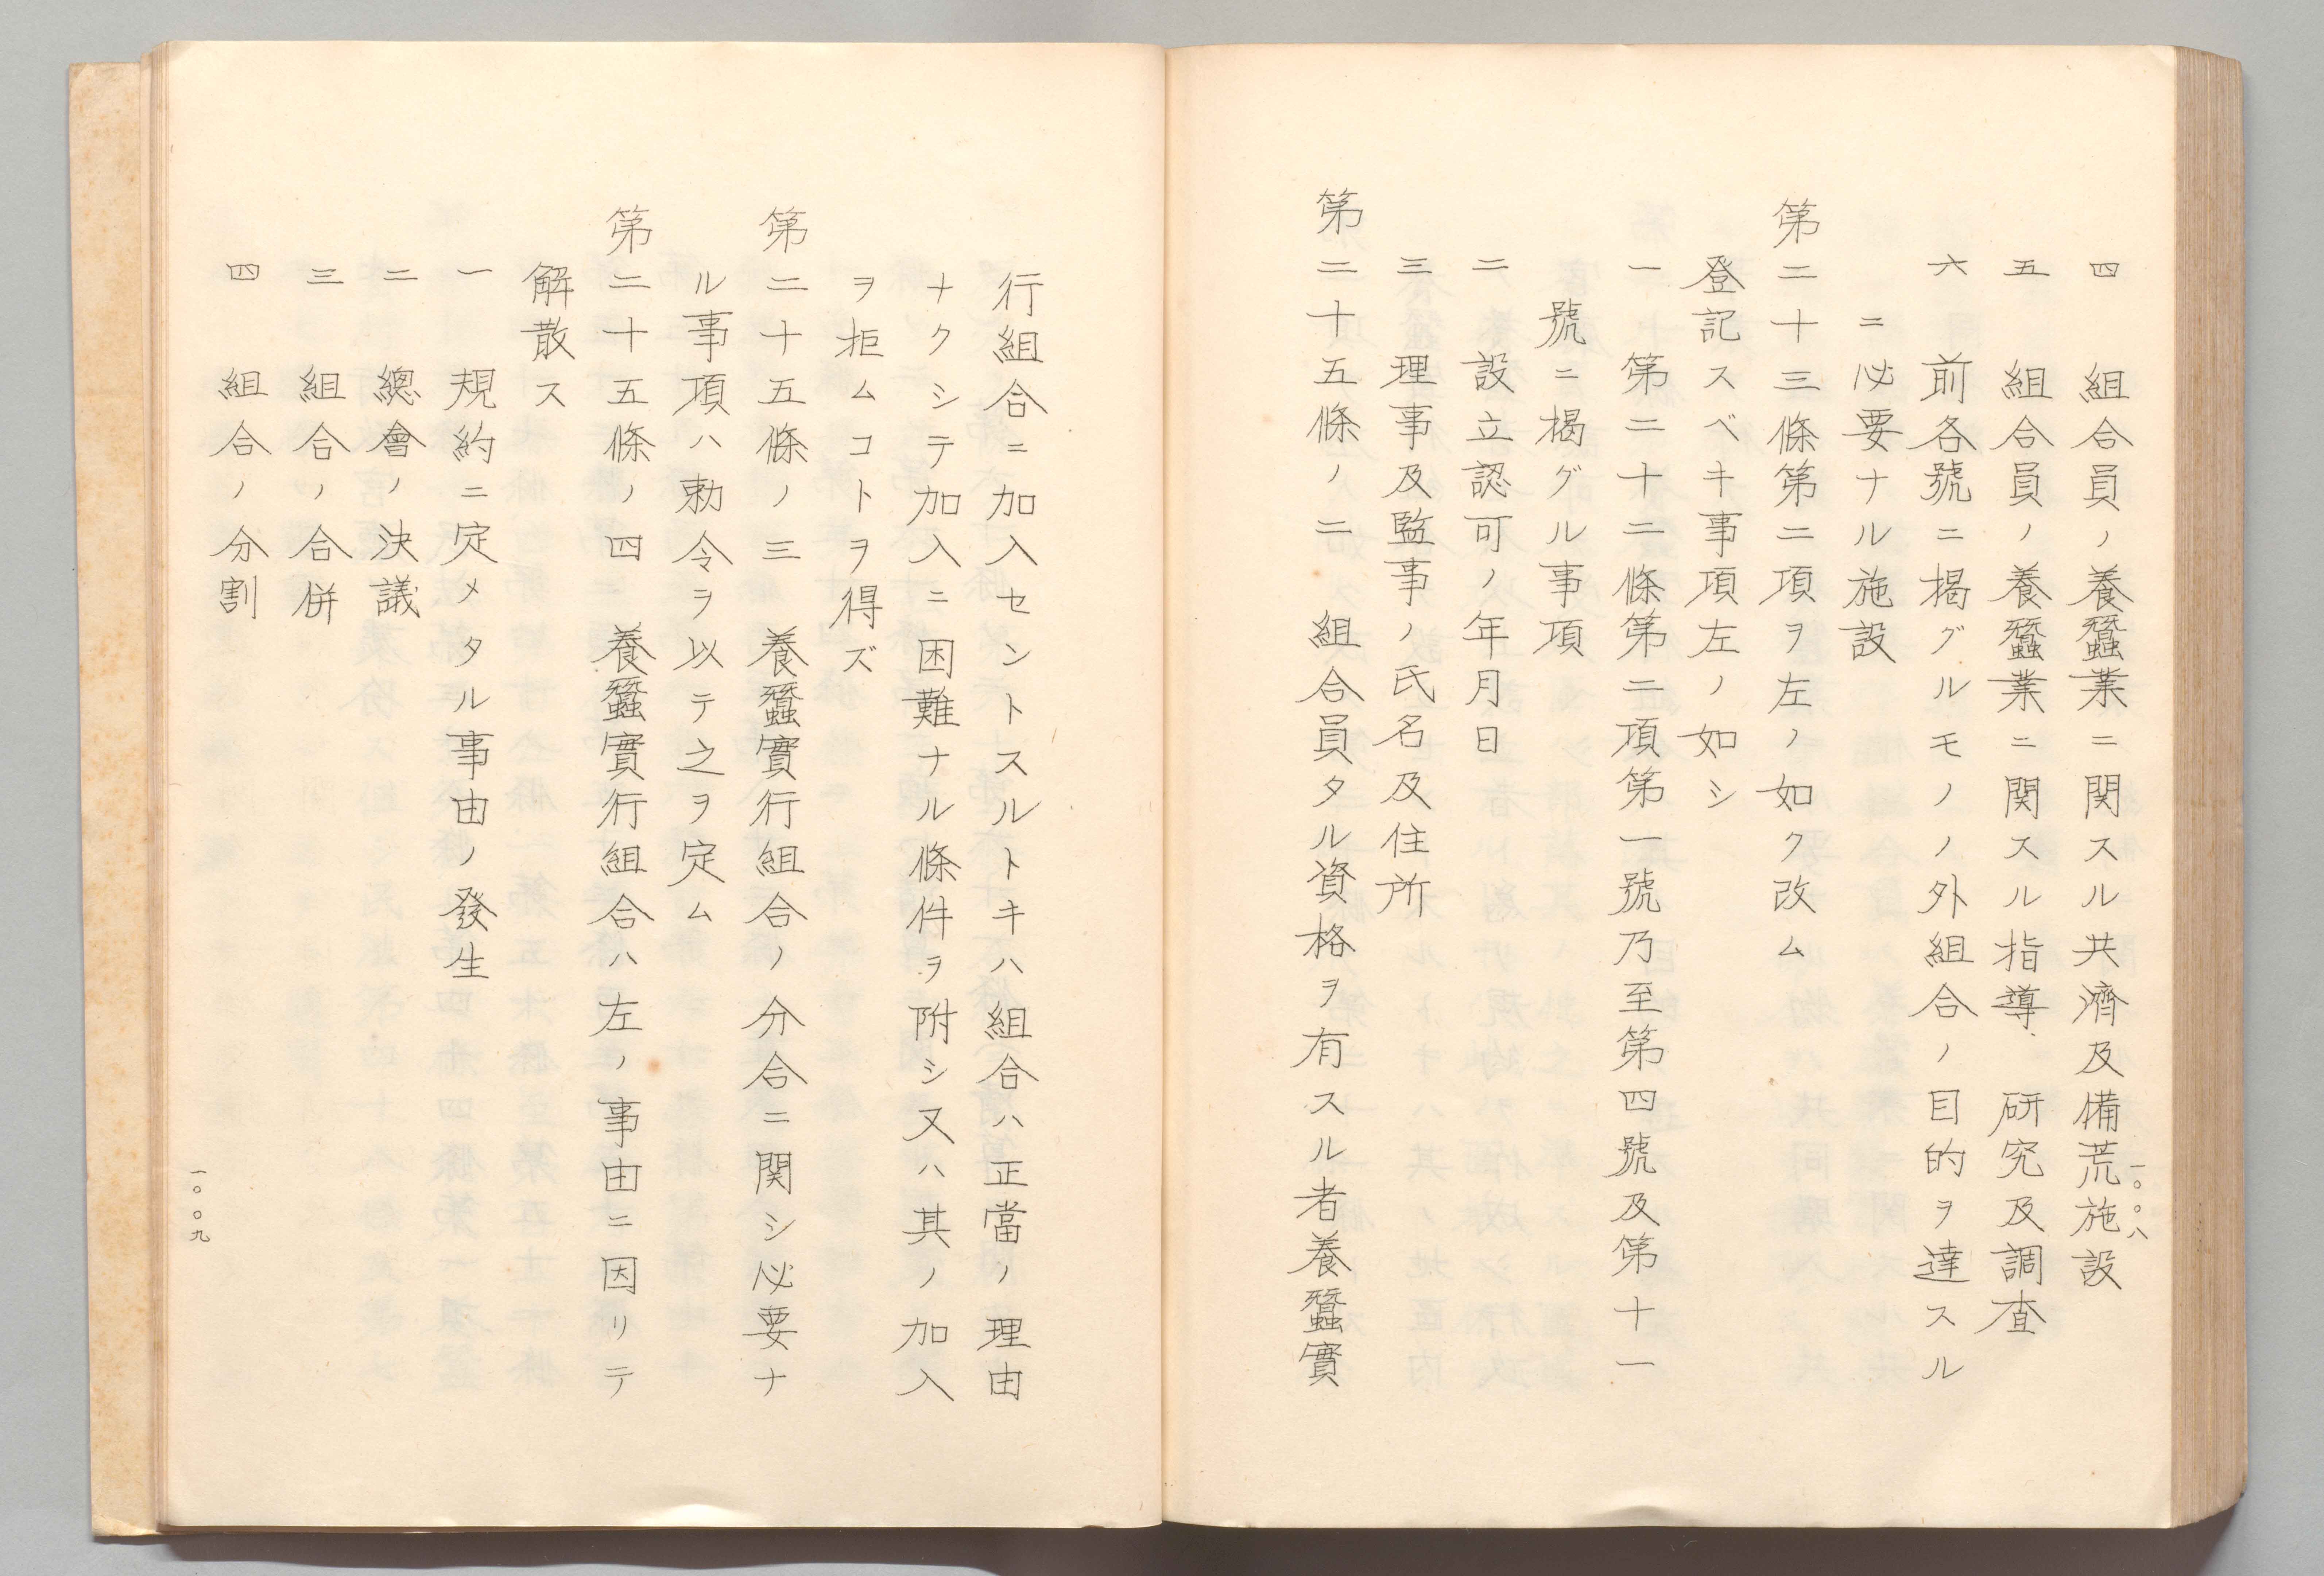 四　組合員ノ養蠶業ニ関スル共濟及備荒施設
五　組合員ノ養蠶業ニ関スル指導、研究及調査
六　前各號ニ掲グルモノノ外組合ノ目的ヲ達スル
ニ必要ナル施設
第二十三條第二項ヲ左ノ如ク改ム
登記スベキ事項左ノ如シ
一　第二十二條第二項第一號乃至第四號及第十一
號ニ掲グル事項
二　設立認可ノ年月日
三　理事及監事ノ氏名及住所
第二十五條ノ二　組合員タル資格ヲ有スル者養蠶實
一〇〇八
行組合ニ加入セントスルトキハ組合ハ正當ノ理由
ナクシテ加入ニ困難ナル條件ヲ附シ又ハ其ノ加入
ヲ拒ムコトヲ得ズ
第二十五條ノ三　養蠶實行組合ノ分合ニ関シ必要ナ
ル事項ハ勅令ヲ以テ之ヲ定ム
第二十五條ノ四　養蠶實行組合ハ左ノ事由ニ因リテ
解散ス
一　規約ニ定メタル事由ノ發生
二　總會ノ決議
三　組合ノ合併
四　組合ノ分割
一〇〇九